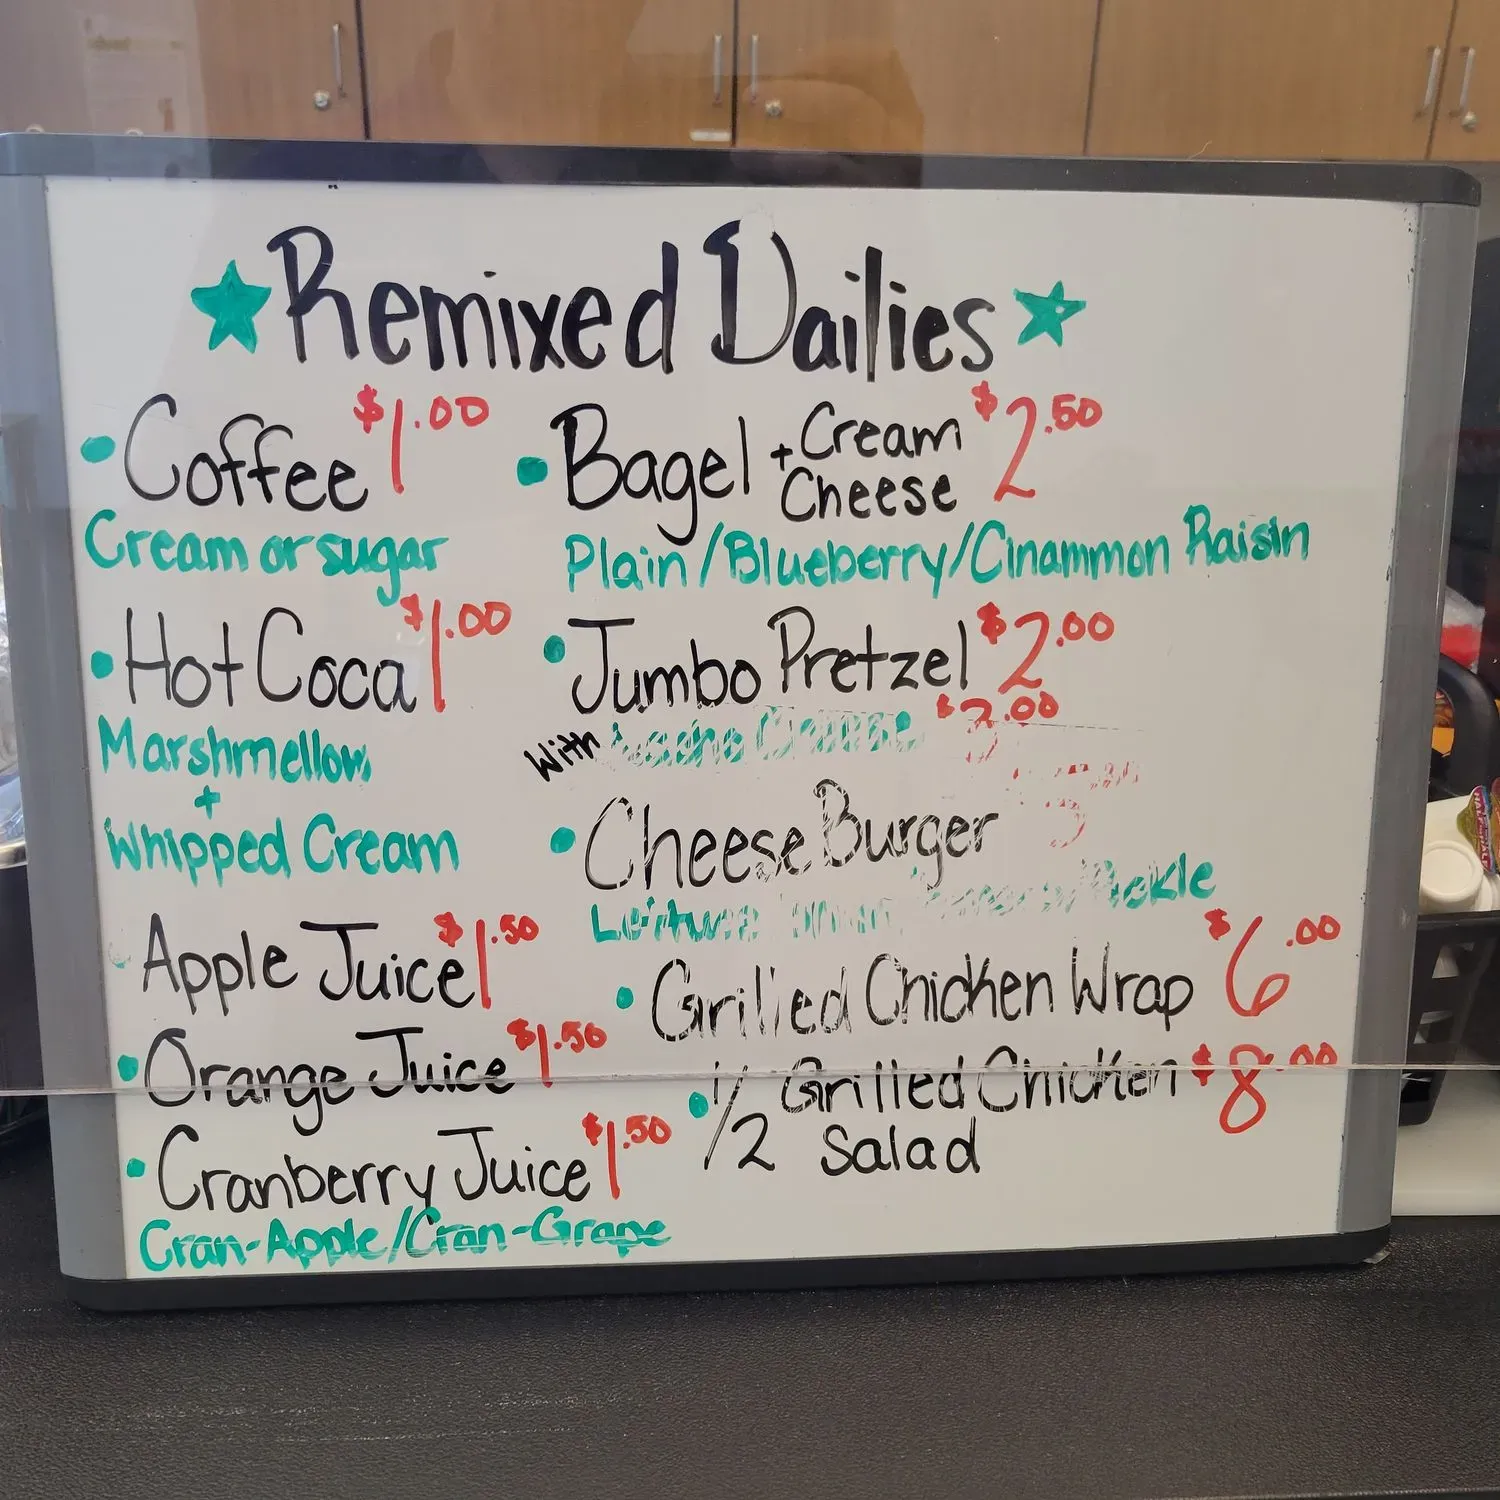 Remixed Dailies
Coffee $1.00
Cream or sugar
Hot Coca $1.00
Marshmellow
+
Whipped Cream
Apple Juice $1.50
Orange Juice $1.50
Cranberry Juice $1.50
Cran-Apple/Cran-Grape
Bagel + Cream Cheese $2.50
Plain/Blueberry/Cinammon Raisin
Jumbo Pretzel $2.00
With $3.00
Cheese Burger
Pickle
Grilled Chicken Wrap $6.00
1/2 Grilled Chicken $8.00
Salad